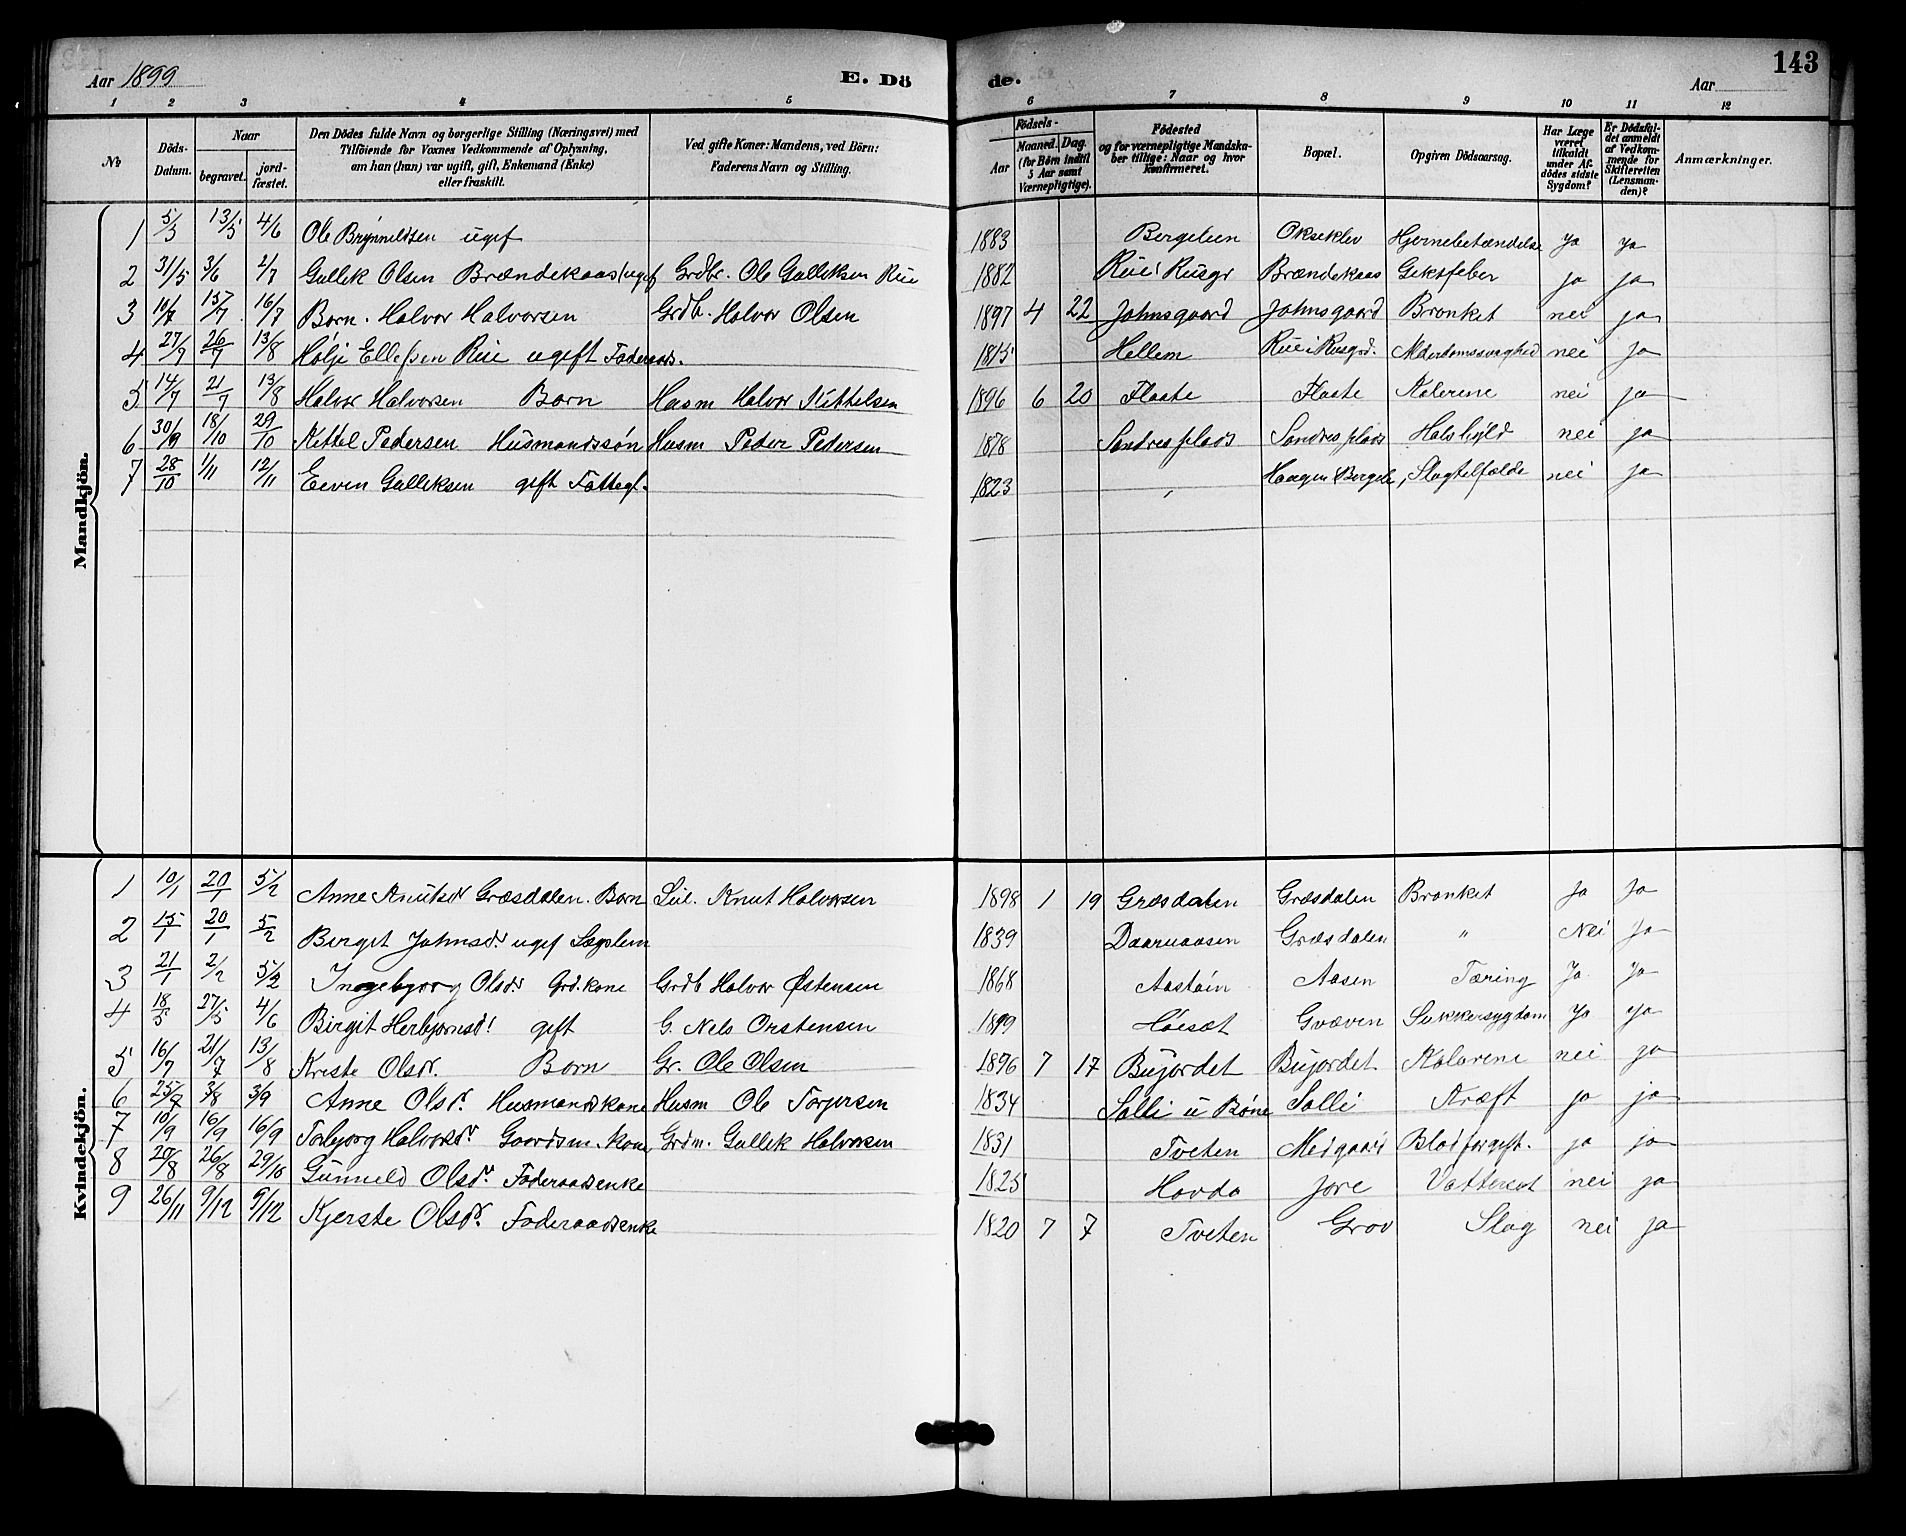 Aar 1899 E. Dö de. Aar 143
1 2 3 4 5 6 7 8 9 10 11 12
No
Döds-Datum.
Naar
begravet.
jordfæstet.
Den Dödes fulde Navn og borgerlige Stilling (Næringsvei) med
Tilföiende for Voxnes Vedkommende af Oplysning,
om han (hun) var ugift, gift, Enkemand (Enke)
eller fraskilt.
Ved gifte Koner: Mandens, ved Börn:
Faderens Navn og Stilling.
Födsels-
Aar
Maaned. Dag.
(for Börn indtil
5 Aar samt
Værnepligtige).
Födested
og for værnepligtige Mandska-
ber tillige: Naar og hvor
konfirmeret.
Bopæl.
Opgiven Dödsaarsag.
Har Læge
været
tilkaldt
under Af-
dödes sidste
Sygdom?
Er Dödsfal-
det anmeldt
af Vedkom-
mende for
Skifteretten
(Lensman-
den)?
Anmærkninger.
Mandkjön.
1 5/5 13/5 4/6 Ole Brynnildsen ugif 1883 Bergelien Okseklev Hjernebetændelse Ja ja
2 31/5 3/6 2/7 Gullik Olsen Brændekaas (ugif Grdbr. Ole Gulliksen Rue 1882 Rue i Rusgr Brændekaas Giktfeber ja ja
3 10/7 15/7 16/7 Barn. Halvor Halvorsen Grdb. Halvor Olsen 1897 4 22 Johnsgaard Johnsgaard Bronket nei ja
4 27/7 26/7 13/8 Hølje Ellefsen Rue ugift Føderaads. 1815 Hellem Rue i Rusgrd. Alderdomssvaghed nei ja
5 14/7 21/7 13/8 Halvor Halvorsen Barn Husm Halvor Kittelsen 1896 6 20 Flaate Flaate Kolerine nei ja
6 30/9 18/10 29/10 Kittel Pedersen Husmandssøn Husm Peder Pedersen 1878 Sondres plads Sondres plads Halsbyld nei ja
7 28/10 1/11 12/11 Eeven Gulliksen gift Fattegl. 1823 Haagen i Bergele, Slagtilfælde nei ja
Kvindekjön.
1 10/1 20/1 5/2 Anne Knutsdr Græsdalen. Barn Lül. Knut Halvorsen 1898 1 19 Græsdalen Græsdalen Bronket Ja Ja
2 15/1 20/1 5/2 Birget Johnsdr ugif Lægslem 1839 Daaruaasen Græsdalen " Nei Ja
3 21/1 2/2 5/2 Ingebjørg Olsdr Grd. kone Grdb Halvor Østensen 1868 Aastøin Aasen Tæring Ja Ja
4 18/5 27/5 4/6 Birgit Herbjørnsdr gift G. Nels Orstensen 1899 Høesæt Gvæven Sukkersygdom Ja Ja
5 16/7 21/7 13/8 Kriste Olsdr. Barn Gr. Ole Olsen 1896 7 17 Bujordet Bujordet Kolerine nei ja
6 25/7 3/8 3/9 Anne Olsdr. Husmandskone Husm Ole Torjersen 1834 Solli u Bøne Solli Kræft ja ja
7 10/9 16/9 16/9 Torbjørg Halvorsdr Gaardsm. kone Grdm. Gullik Halvorsen 1831 Tveten Medgaard Blodforgift. ja ja
8 20/8 26/8 29/10 Gunneld Olsdr. Føderaadsenke 1825 Hovda Jore Vattersot nei ja
9 26/11 9/12 9/12 Kjerste Olsdr. Føderaadsenke 1820 7 7 Tveten Grov Slag nei ja